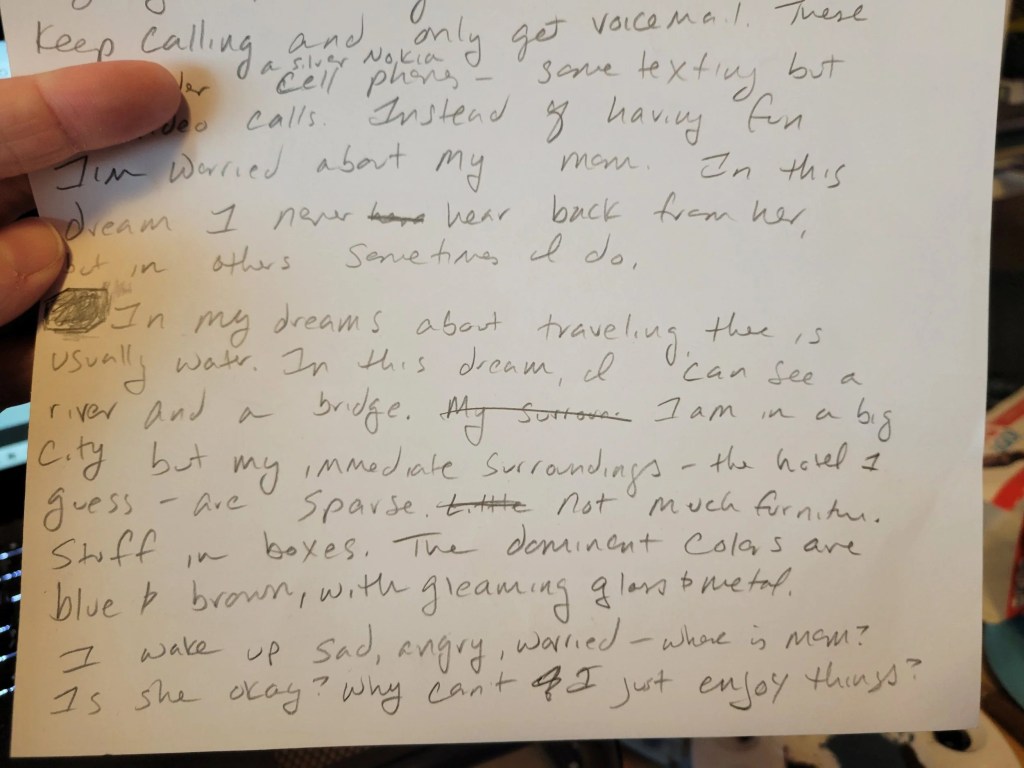 Keep calling and only get voicemail. These
a silver Nokia
cell phones – some texting but
calls. Instead of having fun
I'm worried about my mom. In this
dream I never have hear back from her,
but in others sometimes I do.
In my dreams about traveling, there is
usually water. In this dream, I can see a
river and a bridge. My surroun. I am in a big
city but my immediate surroundings – the hotel I
guess – are sparse. Little Not much furniture.
Stuff in boxes. The dominent colors are
blue & brown, with gleaming glass & metal.
I wake up sad, angry, worried – where is mom?
Is she okay? Why can't I just enjoy things?